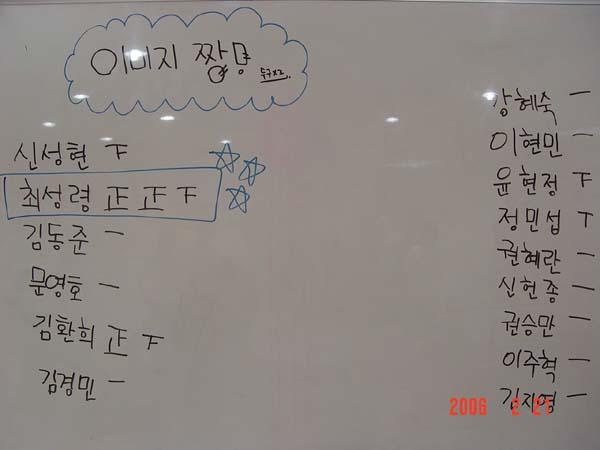 이미지 짱먕
두구x2..
신성현 下
최성령 正 正 下
김동준 一
문영호 一
김환희 正 下
김경민 一
강혜숙 一
이현민 一
윤현정 下
정민섭 丅
권혜란 一
신헌종 一
권승만 一
이주혁 一
김지영 一
2006 2 21